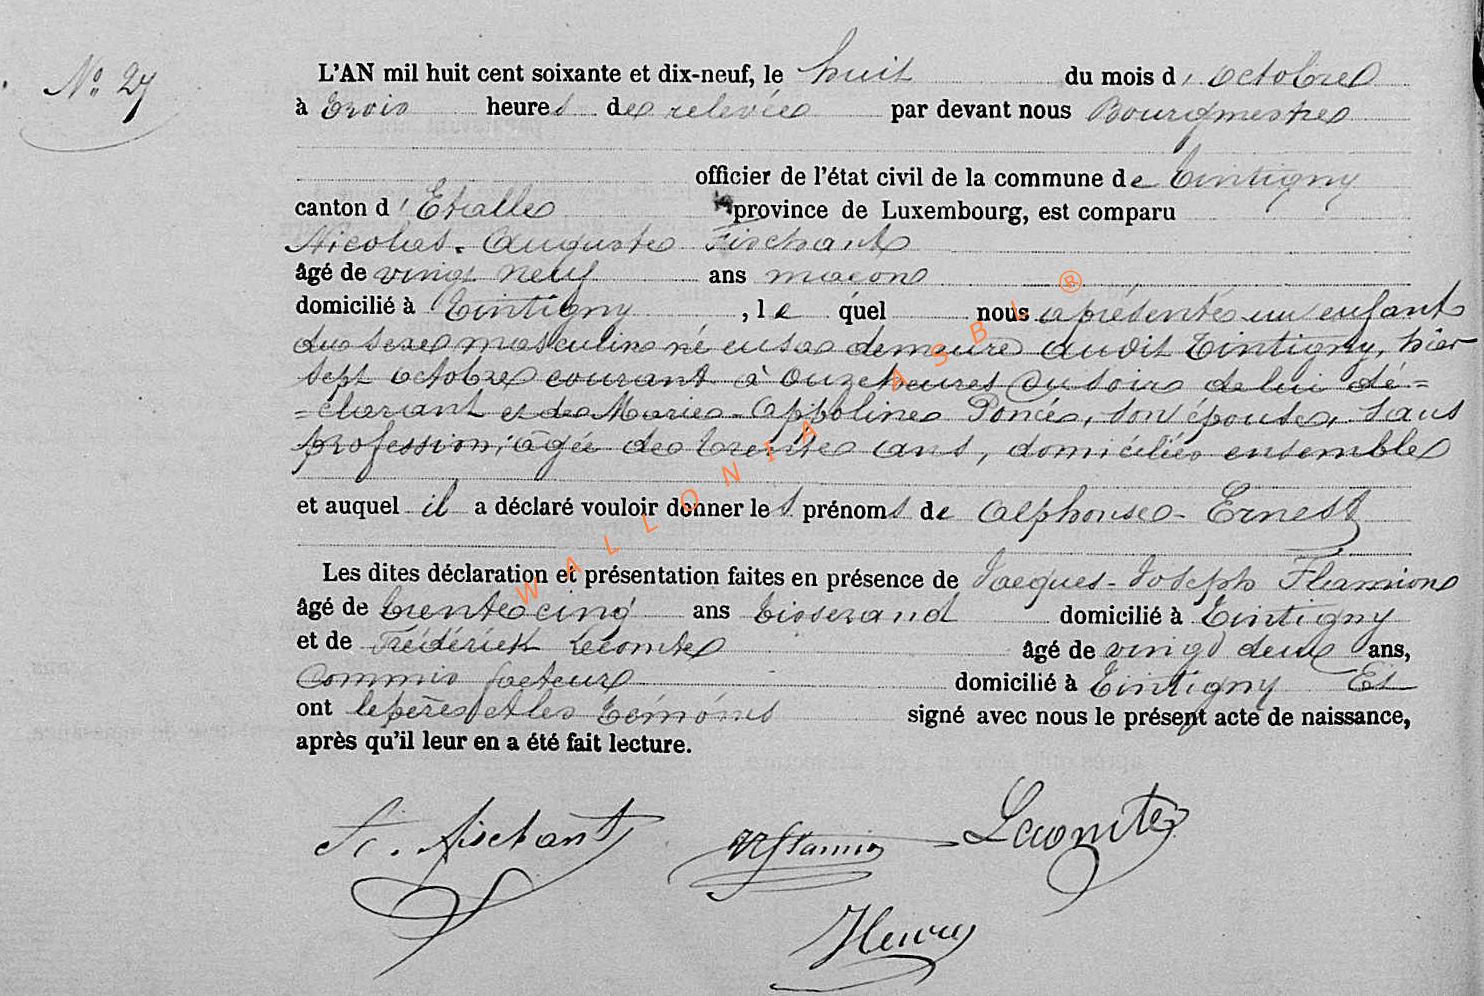 N° 27
L'AN mil huit cent soixante et dix-neuf, le huit du mois d'octobre
à trois heures de relevée par devant nous Bourgmestre
officier de l'état civil de la commune de Tintigny
canton d'Etalle province de Luxembourg, est comparu
Nicolas-Auguste Fischant
âgé de vingt neuf ans maçon
domicilié à Tintigny, le quel nous a présenté un enfant
du sexe masculin né en sa demeure audit Tintigny, hier
sept octobre courant à onze heures du soir de lui dé=
=clarant et de Marie-Appoline Poncé, son épouse, sans
profession, âgée de trente ans, domiciliés ensemble
et auquel il a déclaré vouloir donner les prénoms de Alphonse-Ernest
Les dites déclaration et présentation faites en présence de Jacques-Joseph Flamion
âgé de trente cinq ans tisserand domicilié à Tintigny
et de Fréderick Lecomte âgé de vingt deux ans,
Commis facteur domicilié à Tintigny Et
ont le père et les témoins signé avec nous le présent acte de naissance,
après qu'il leur en a été fait lecture.
Fischant Flamion Lecomte
Henry
WALLONIA ASBL ®